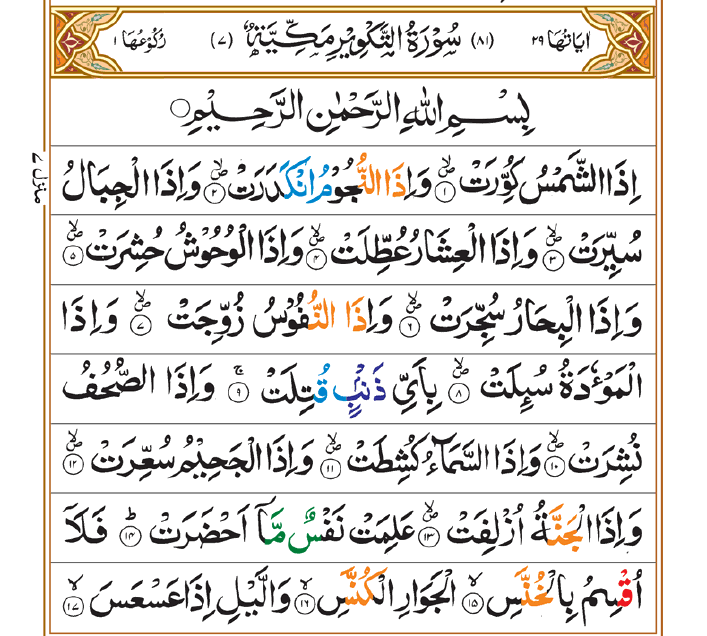 اٰيَاتُهَا ٢٩ (٨١) سُوْرَةُ التَّكْوِيْرِ مَكِّيَّةٌ (٧) رُكُوْعُهَا ١
بِسْمِ اللّٰهِ الرَّحْمٰنِ الرَّحِيْمِ ○
منزل ٧
اِذَا الشَّمْسُ كُوِّرَتْ ۙ۝١ وَاِذَا النُّجُوْمُ انْكَدَرَتْ ۙ۝٢ وَاِذَا الْجِبَالُ
سُيِّرَتْ ۙ۝٣ وَاِذَا الْعِشَارُ عُطِّلَتْ ۙ۝٤ وَاِذَا الْوُحُوْشُ حُشِرَتْ ۙ۝٥
وَاِذَا الْبِحَارُ سُجِّرَتْ ۙ۝٦ وَاِذَا النُّفُوْسُ زُوِّجَتْ ۙ۝٧ وَاِذَا
الْمَوْءٗدَةُ سُىِٕلَتْ ۙ۝٨ بِاَيِّ ذَنْۢبٍ قُتِلَتْ ۚ۝٩ وَاِذَا الصُّحُفُ
نُشِرَتْ ۙ۝١٠ وَاِذَا السَّمَآءُ كُشِطَتْ ۙ۝١١ وَاِذَا الْجَحِيْمُ سُعِّرَتْ ۙ۝١٢
وَاِذَا الْجَنَّةُ اُزْلِفَتْ ۙ۝١٣ عَلِمَتْ نَفْسٌ مَّاۤ اَحْضَرَتْ ؕ۝١٤ فَلَاۤ
اُقْسِمُ بِالْخُنَّسِ ۙ۝١٥ الْجَوَارِ الْكُنَّسِ ۙ۝١٦ وَالَّيْلِ اِذَا عَسْعَسَ ۙ۝١٧